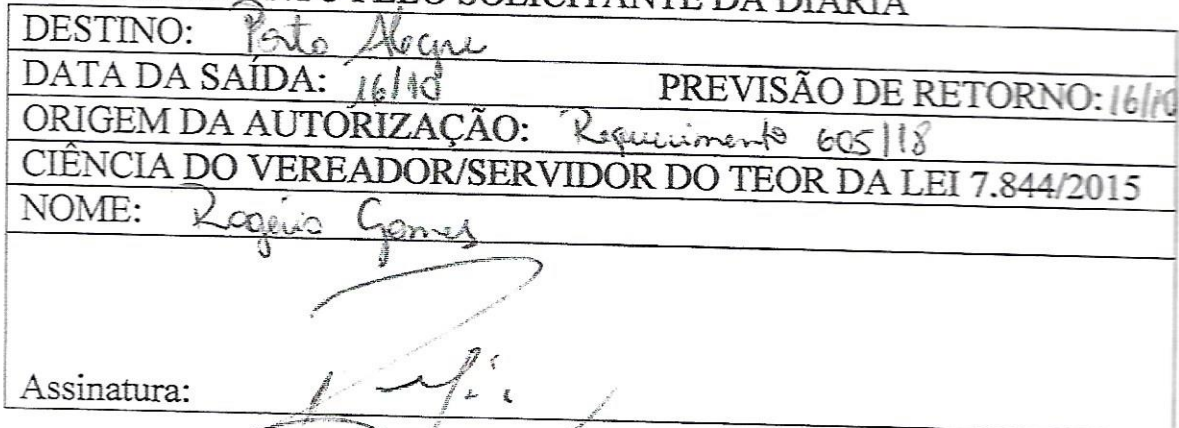 PELO SOLICITANTE DA DIÁRIA
DESTINO: Porto Alegre
DATA DA SAÍDA: 16/10 PREVISÃO DE RETORNO: 16/10
ORIGEM DA AUTORIZAÇÃO: Requerimento 605/18
CIÊNCIA DO VEREADOR/SERVIDOR DO TEOR DA LEI 7.844/2015
NOME: Rogério Gomes
Assinatura: